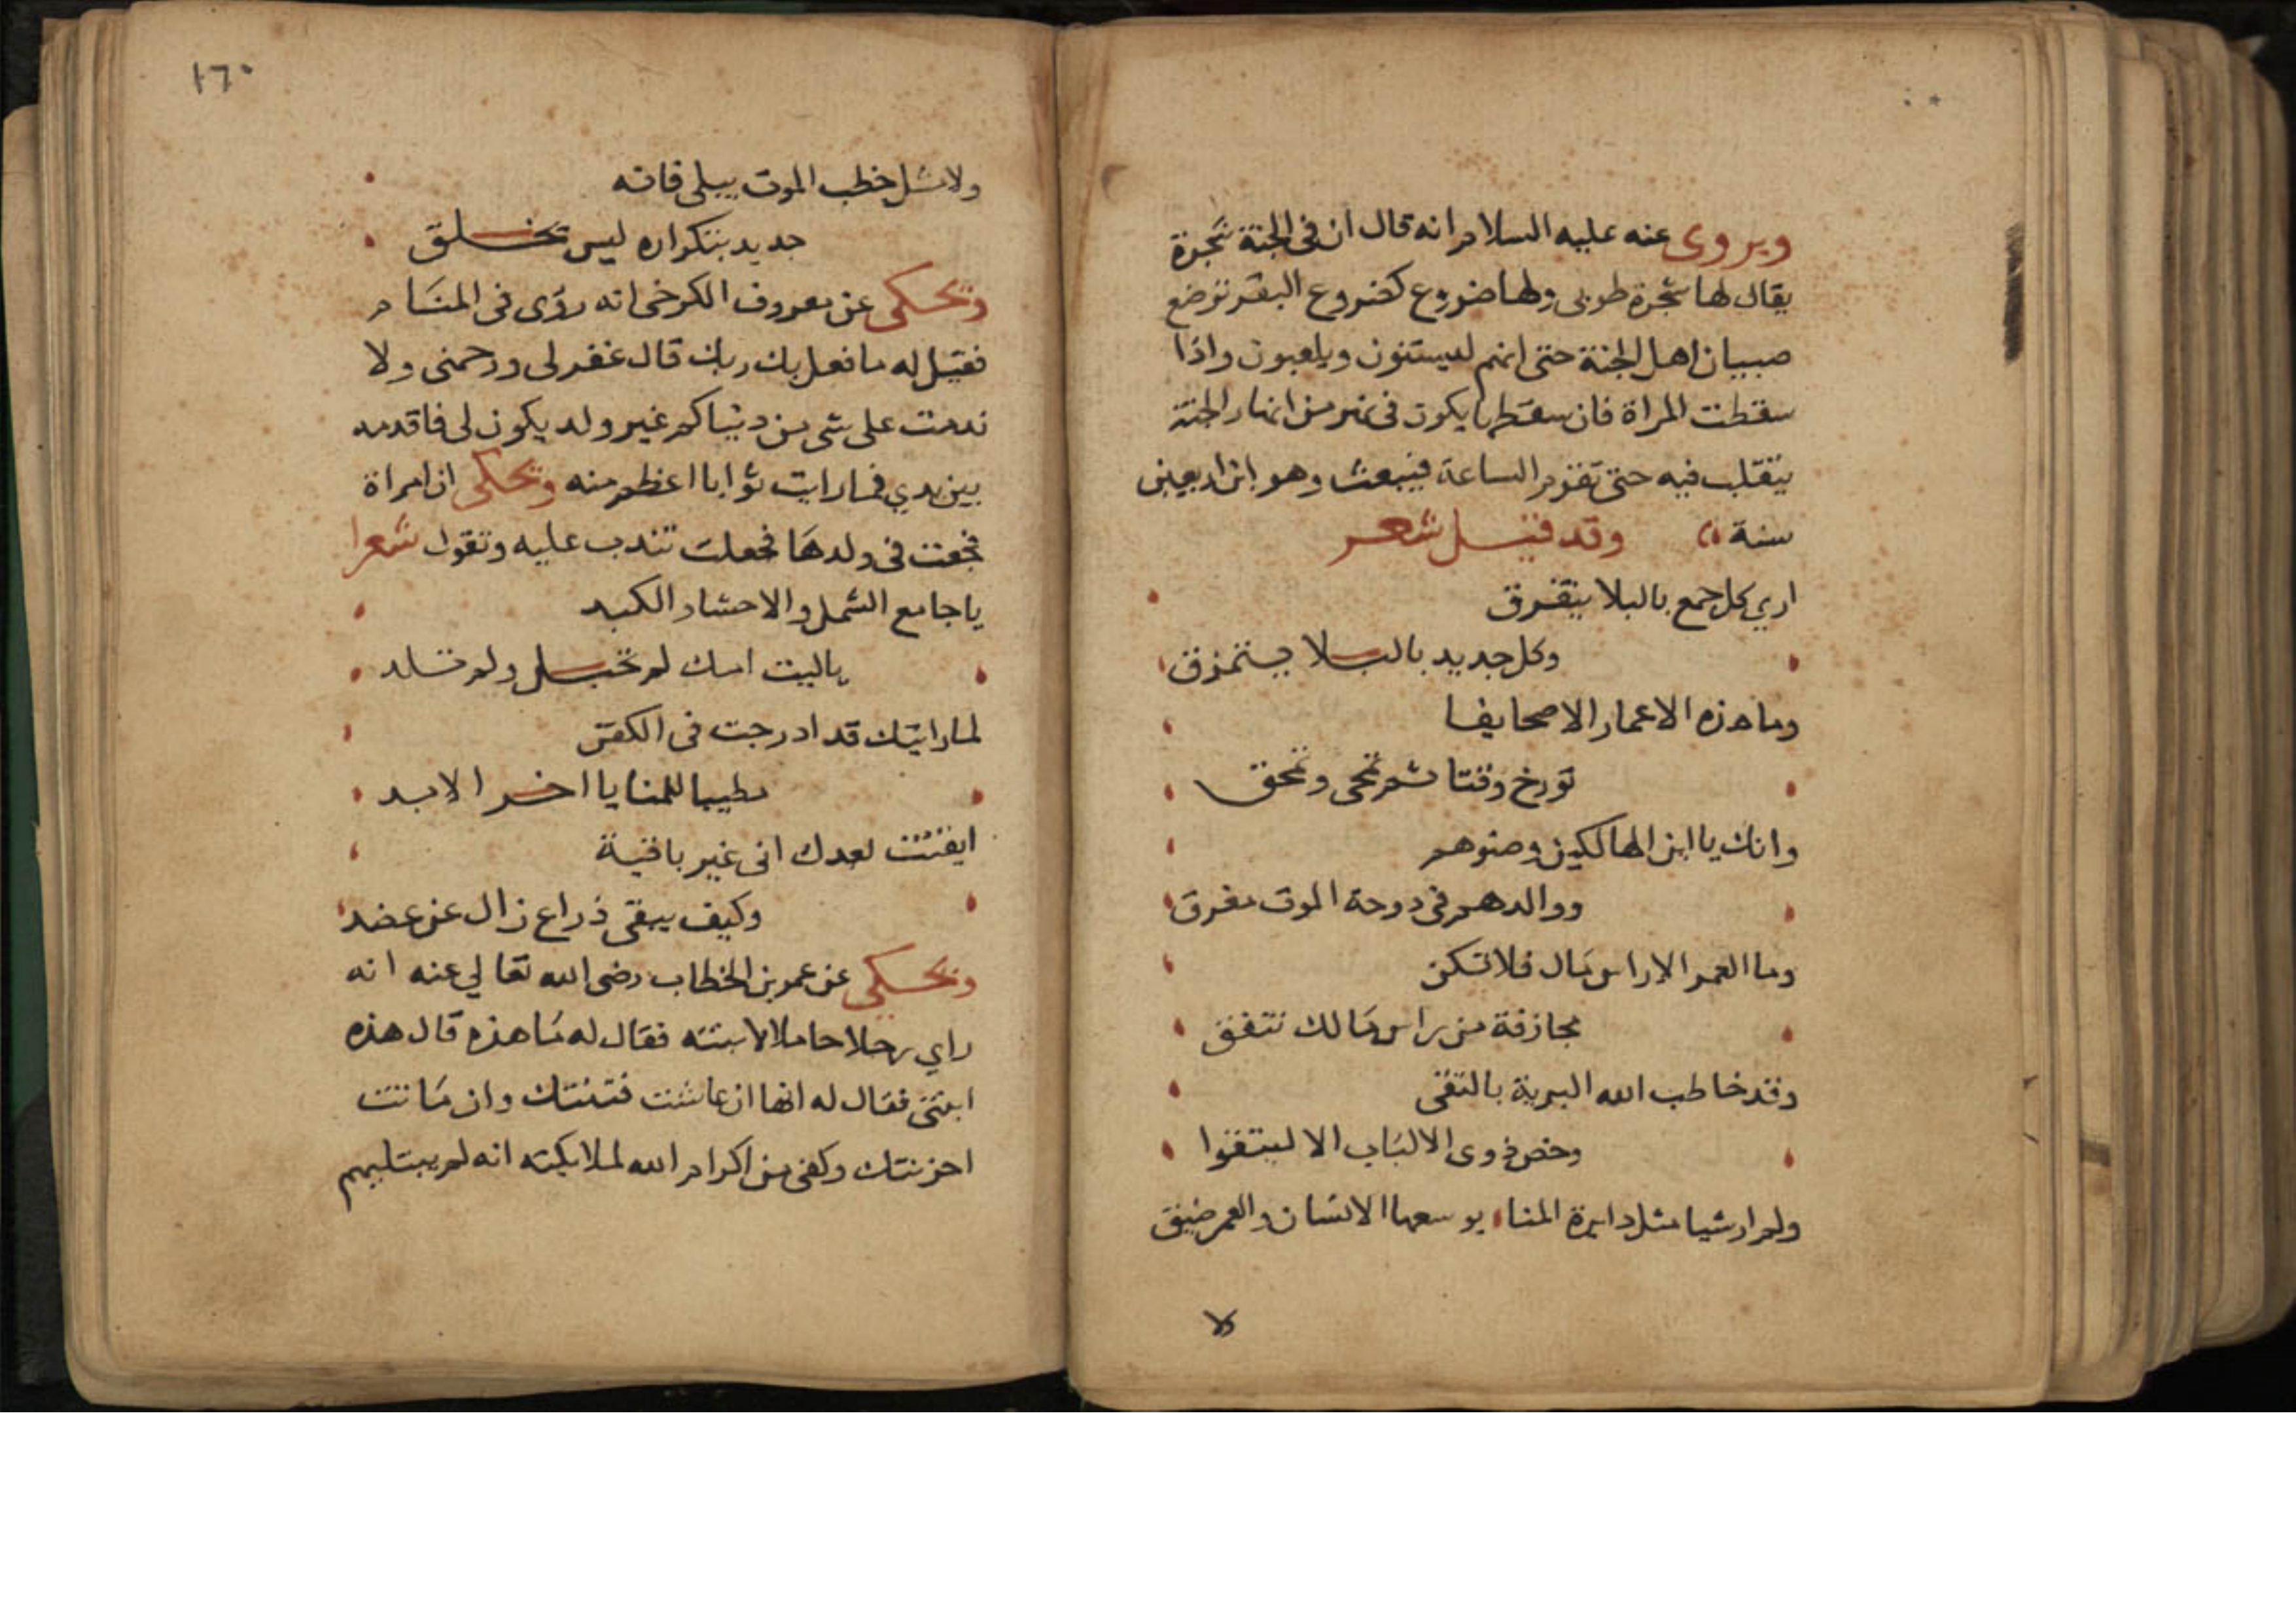 ويروى عنه عليه السلام انه قال ان فى الجنة شجرة
يقال لها شجرة طوبى ولها ضروع كضروع البقر ترضع
صبيان اهل الجنة حتى انهم ليستنون ويلعبون واذا
سقطت المراة فان سقطها يكون فى نهر من انهار الجنة
يتقلب فيه حتى تقوم الساعة فيبعث وهو ابن اربعين
سنة وقد قيل شعر
اري كل جمع بالبلا يتفرق
وكل جديد بالبلا يتمزق
وما هذه الاعمار الا صحايفا
تورخ وقتا ثم تمحى وتمحق
وانك يا ابن الهالكين وصنوهم
ووالدهم فى دوحة الموت معرق
وما العمر الا راس مال فلا تكن
مجازفة من راس مالك تنفق
وقد خاطب الله البرية بالتقى
وخص ذوى الالباب الا ليتقوا
ولم ار شيا مثل دايرة المنا يوسعها الانسان والعمر ضيق
ولا
١٦٠
ولا مثل خطب الموت يبلى فانه
جديد بتكراره ليس يخلق
ويحكى عن معروف الكرخى انه رؤى فى المنام
فقيل له ما فعل بك ربك قال غفر لى ورحمنى ولا
ندمت على شى من دنياكم غير ولد يكون لى فاقدمه
بين يدي فما رايت ثوابا اعظم منه ويحكى ان امراة
فجعت فى ولدها فجعلت تندب عليه وتقول شعرا
يا جامع الشمل والاحشاء والكبد
ياليت امك لم تحبل ولم تلد
لما رايتك قد ادرجت فى الكفن
مطيبا للمنايا اخر الابد
ايقنت بعدك انى غير باقية
وكيف يبقى ذراع زال عن عضد
ويحكى عن عمر بن الخطاب رضى الله تعالي عنه انه
راي رجلا حاملا لابنته فقال له ما هذه قال هذه
ابنتى فقال له انها ان عاشت فتنتك وان ماتت
احزنتك وكفى من اكرام الله لملايكته انه لم يبتليهم